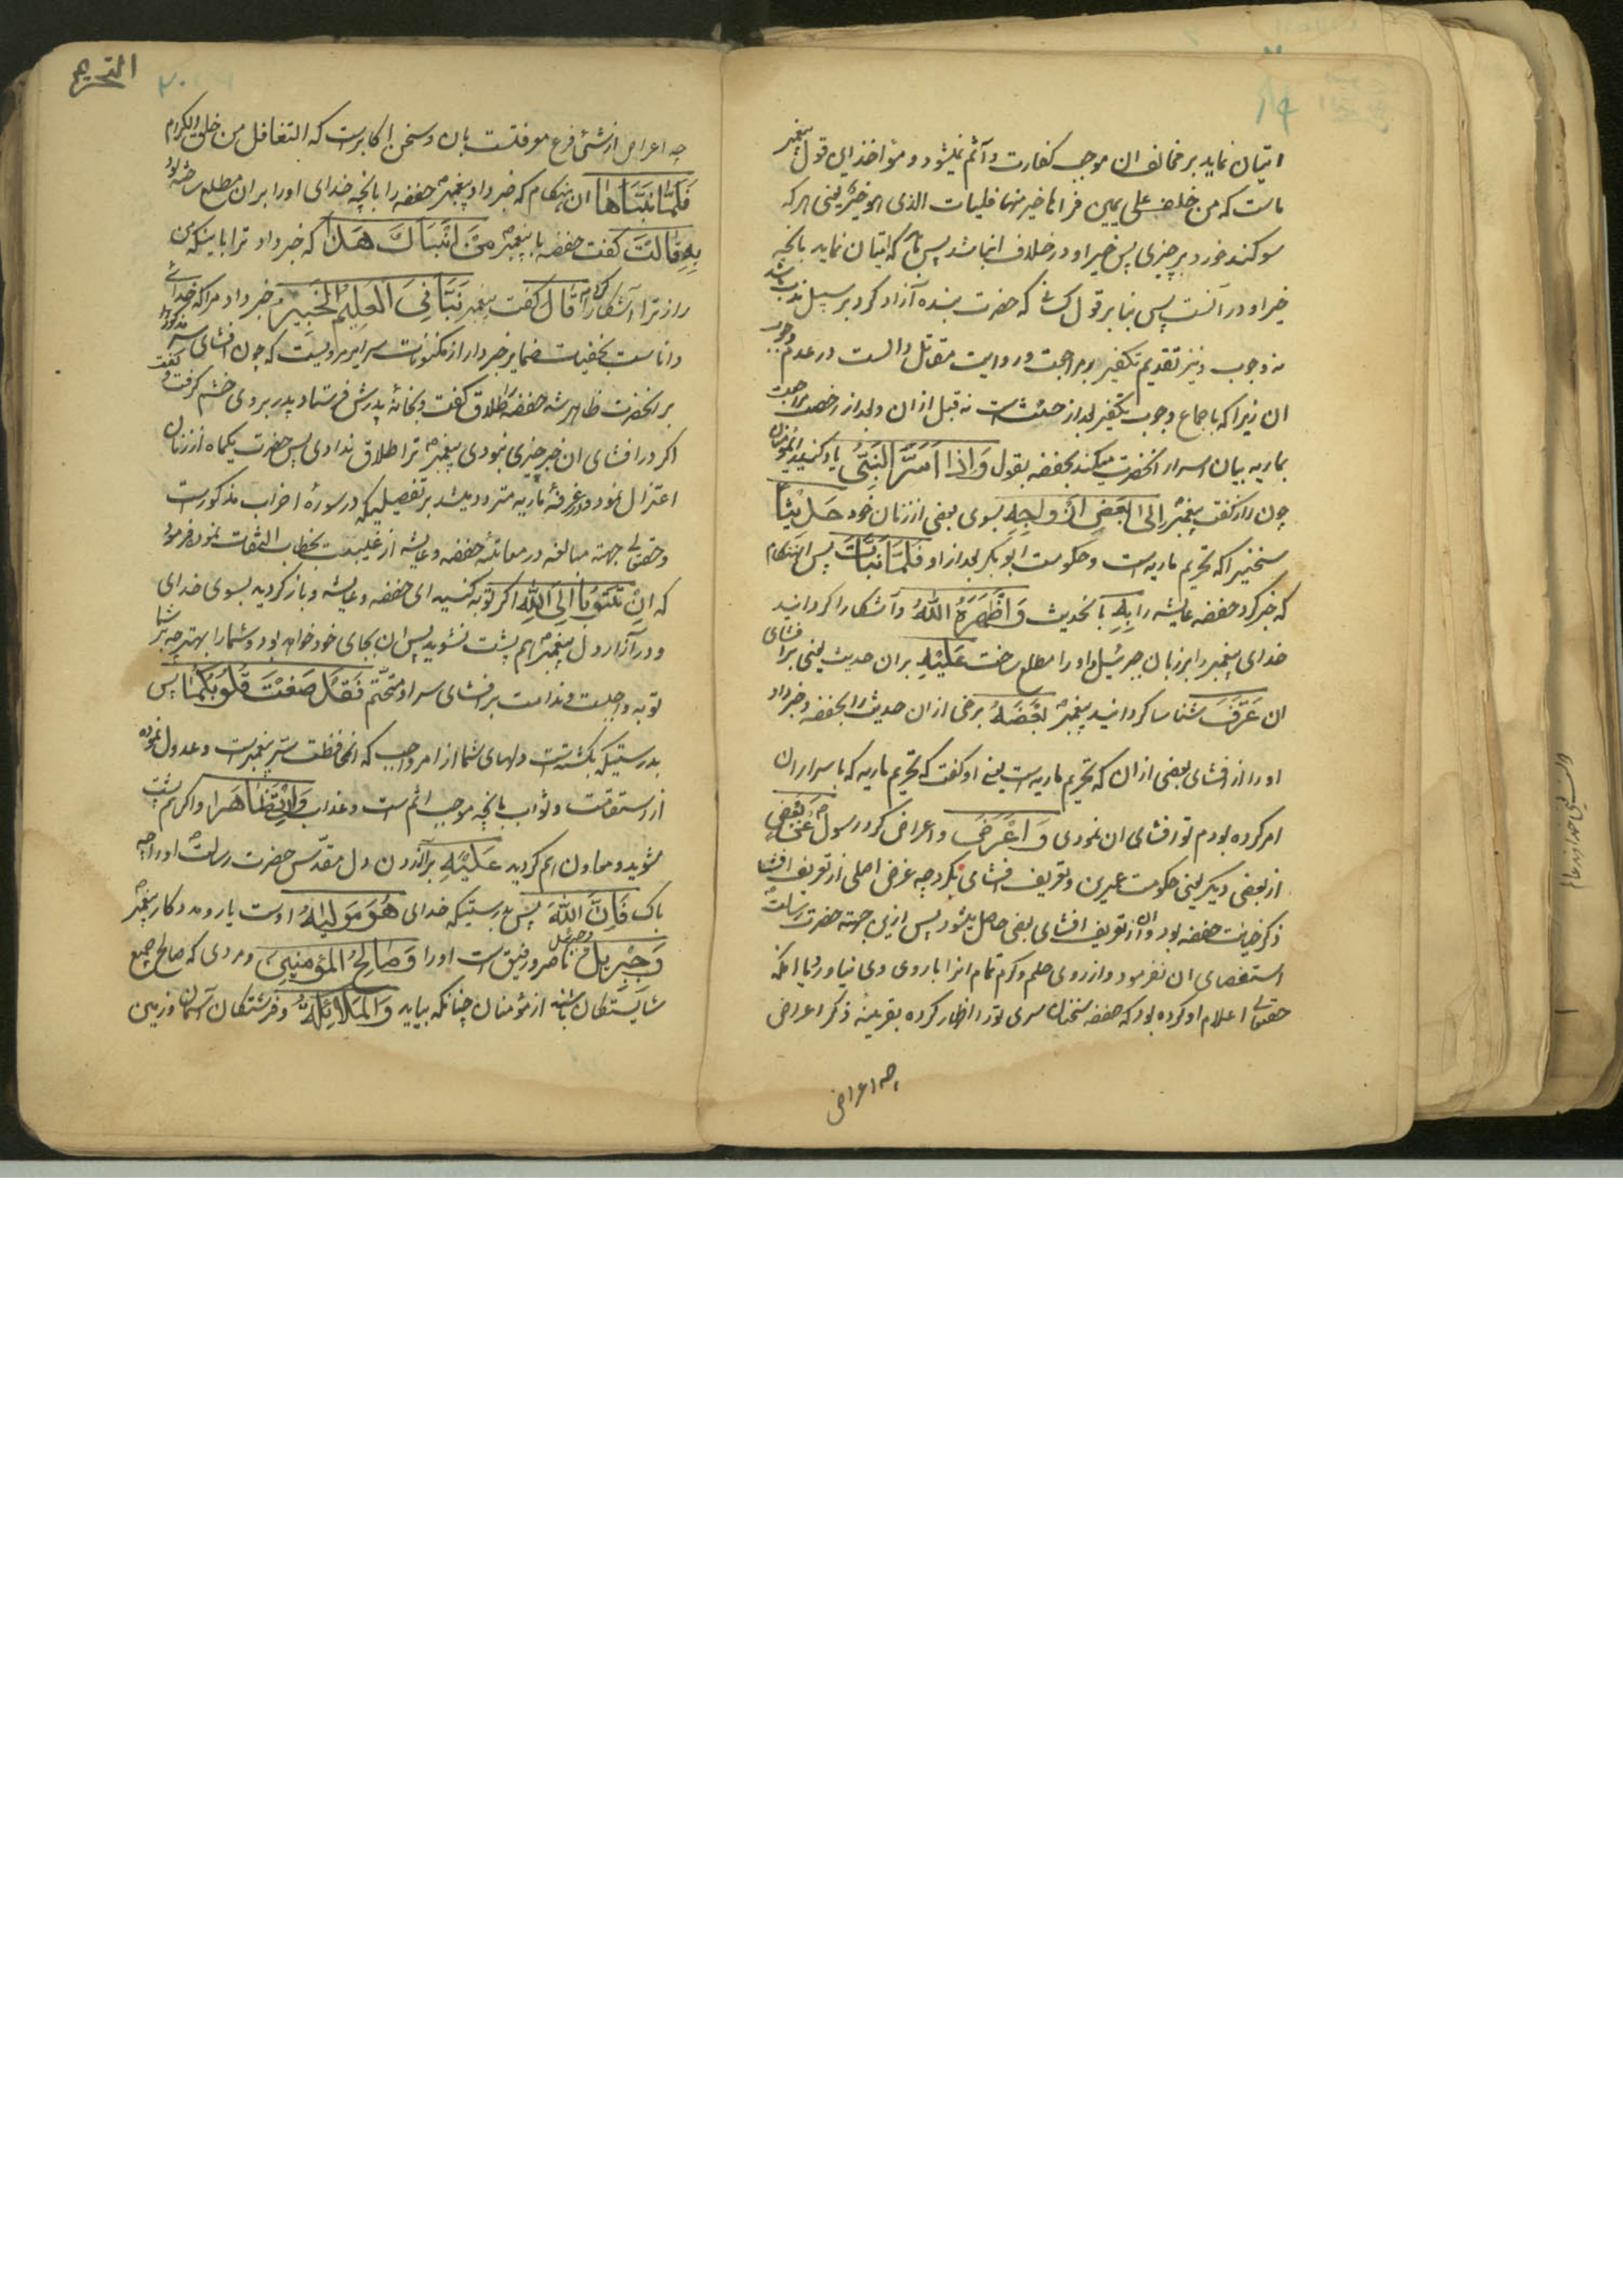 اتیان نماید بر مخالف ان موجب کفارت و آثم نمیشود و مؤاخذ این قول پیغمبر
ماست که من حلف علی یمین فرای خیر منها فلیات الذی هو خیر یعنی هر که
سوکند خورد بر چیزی پس خیر او در خلاف انباشد پس باید که اتیان نماید بانچه
خیر او در آنست پس بنا بر قول که حضرت بنده آزاد کرد بر سبیل ندب باشد
نه وجوب و نیز تقدیم تکفیر بر مراجعت و روایت مقاتل دالست در عدم وجوب
ان زیرا که باجماع وجوب تکفیر بعد از حنث است نه قبل از ان و بعد از رخصت مراجعت
بماریه بیان اسرار انحضرت میکند بحفصه بقول وَاِذا اَسَرَّ النَبِیُّ یاد کنید ای مؤمنان
چون راز کفت پیغمبر اِلیٰ بَعضِ اَزواجِهِ بسوی بعضی از زنان خود حَدیثاً
سخنیرا که تحریم ماریه است و حکومت ابو بکر بعد از او فَلَمّا نَبَّاَت پس انهنکام
که خبر کرد حفصه عایشه را بِهِ بانحدیث وَ اَظهَرَهُ اللّٰهُ وآشکارا کردانید
خدای پیغمبر را بر زبان جبرئیل و او را مطلع ساخت عَلَیهِ بران حدیث یعنی بر افشای
ان عَرَّفَ شناسا کردانید پیغمبر بَعضَهُ برخی از ان حدیث را بحفصه و خبر داد
او را از افشای بعضی از ان که تحریم ماریه است یعنی او کفت که تحریم ماریه که باسرار ان
امر کرده بودم تو افشای ان نمودی وَ اَعْرَضَ و اعراض کرد رسول عَن بَعضٍ
از بعضی دیکر یعنی حکومت عمرین و تعریف افشای نکرد چه غرض اصلی از تعریف افشا
ذکر خیانت حفصه بود و ان از تعریف افشای بعضی حاصل میشود پس ازین جهة حضرت رسالت
استقصای ان نفرمود و از روی حلم و کرم تمام انرا با روی وی نیاورد با انکه
حقتعالی اعلام او کرده بود که حفصه سخنان سری تو را اظهار کرده بقرینهٔ ذکر اعراض
چه اعراض
التحریم
چه اعراض از شئی فرع معرفتست بان و سخن اکابرست که التغافل من خلق الکرام
فَلَمّا نَبَّاَها ان هنکام که خبر داد پیغمبر حفصه را بانچه خدای او را بران مطلع ساخته بود
بِهِ قالَت کفت حفصه با پیغمبر مَن اَنبَاَکَ هٰذا که خبر داد ترا باینکه من
راز ترا آشکارا کردم قالَ کفت پیغمبر نَبَّاَنِیَ العَلیمُ الخَبیرُ خبر داد مرا که خدای
داناست بخفیات ضمایر خبردار از مکنونات سرایر مرویست که چون افشای سر مذکور
بر انحضرت ظاهر شد حفصه را طلاق کفت و بخانهٔ پدرش فرستاد پدر بر وی خشم کرفت و کفت
اکر در افشای ان خبر چیزی نبودی پیغمبر ترا طلاق ندادی پس حضرت یکماه از زنان
اعتزال نمود و در غرفهٔ ماریه متردد میشد بر تفصیلیکه در سورهٔ احزاب مذکورست
و حقتعالی جهة مبالغه در معاتبهٔ حفصه و عایشه از غیبت بخطاب التفات نموده فرمود
که اِن تَتُوبا اِلَی اللّٰهِ اکر توبه کنید ای حفصه و عایشه و باز کردید بسوی خدای
و در آزار دل پیغمبر هم پشت نشوید پس ان بجای خود خواهد بود و شما را بهتر چه بر شما
توبه واجبست و ندامت بر افشای سر او متحتم فَقَد صَغَت قُلُوبُکُما پس
بدرستیکه بکشته است دلهای شما از امر واجب که ان محافظت سر پیغمبرست و عدول نموده
از استقامت و ثواب بانچه موجب اثم است و عذاب وَاِن تَظاهَرا و اکر هم پشت
شوید و معاون هم کردید عَلَیهِ بر آزردن دل مقدس حضرت رسالت او را چه
باک فَاِنَّ اللّٰهَ پس بدرستیکه خدای هُوَ مَولیٰهُ اوست یار و مددکار پیغمبر
وَجِبریلُ و جبرئیل ناصر و رفیق است او را وَصالِحُ المُؤمِنینَ و مردی که صالح جمیع
شایستکان باشد از مؤمنان چنانکه بیاید وَالمَلائِکَةُ و فرشتکان آسمان و زمین